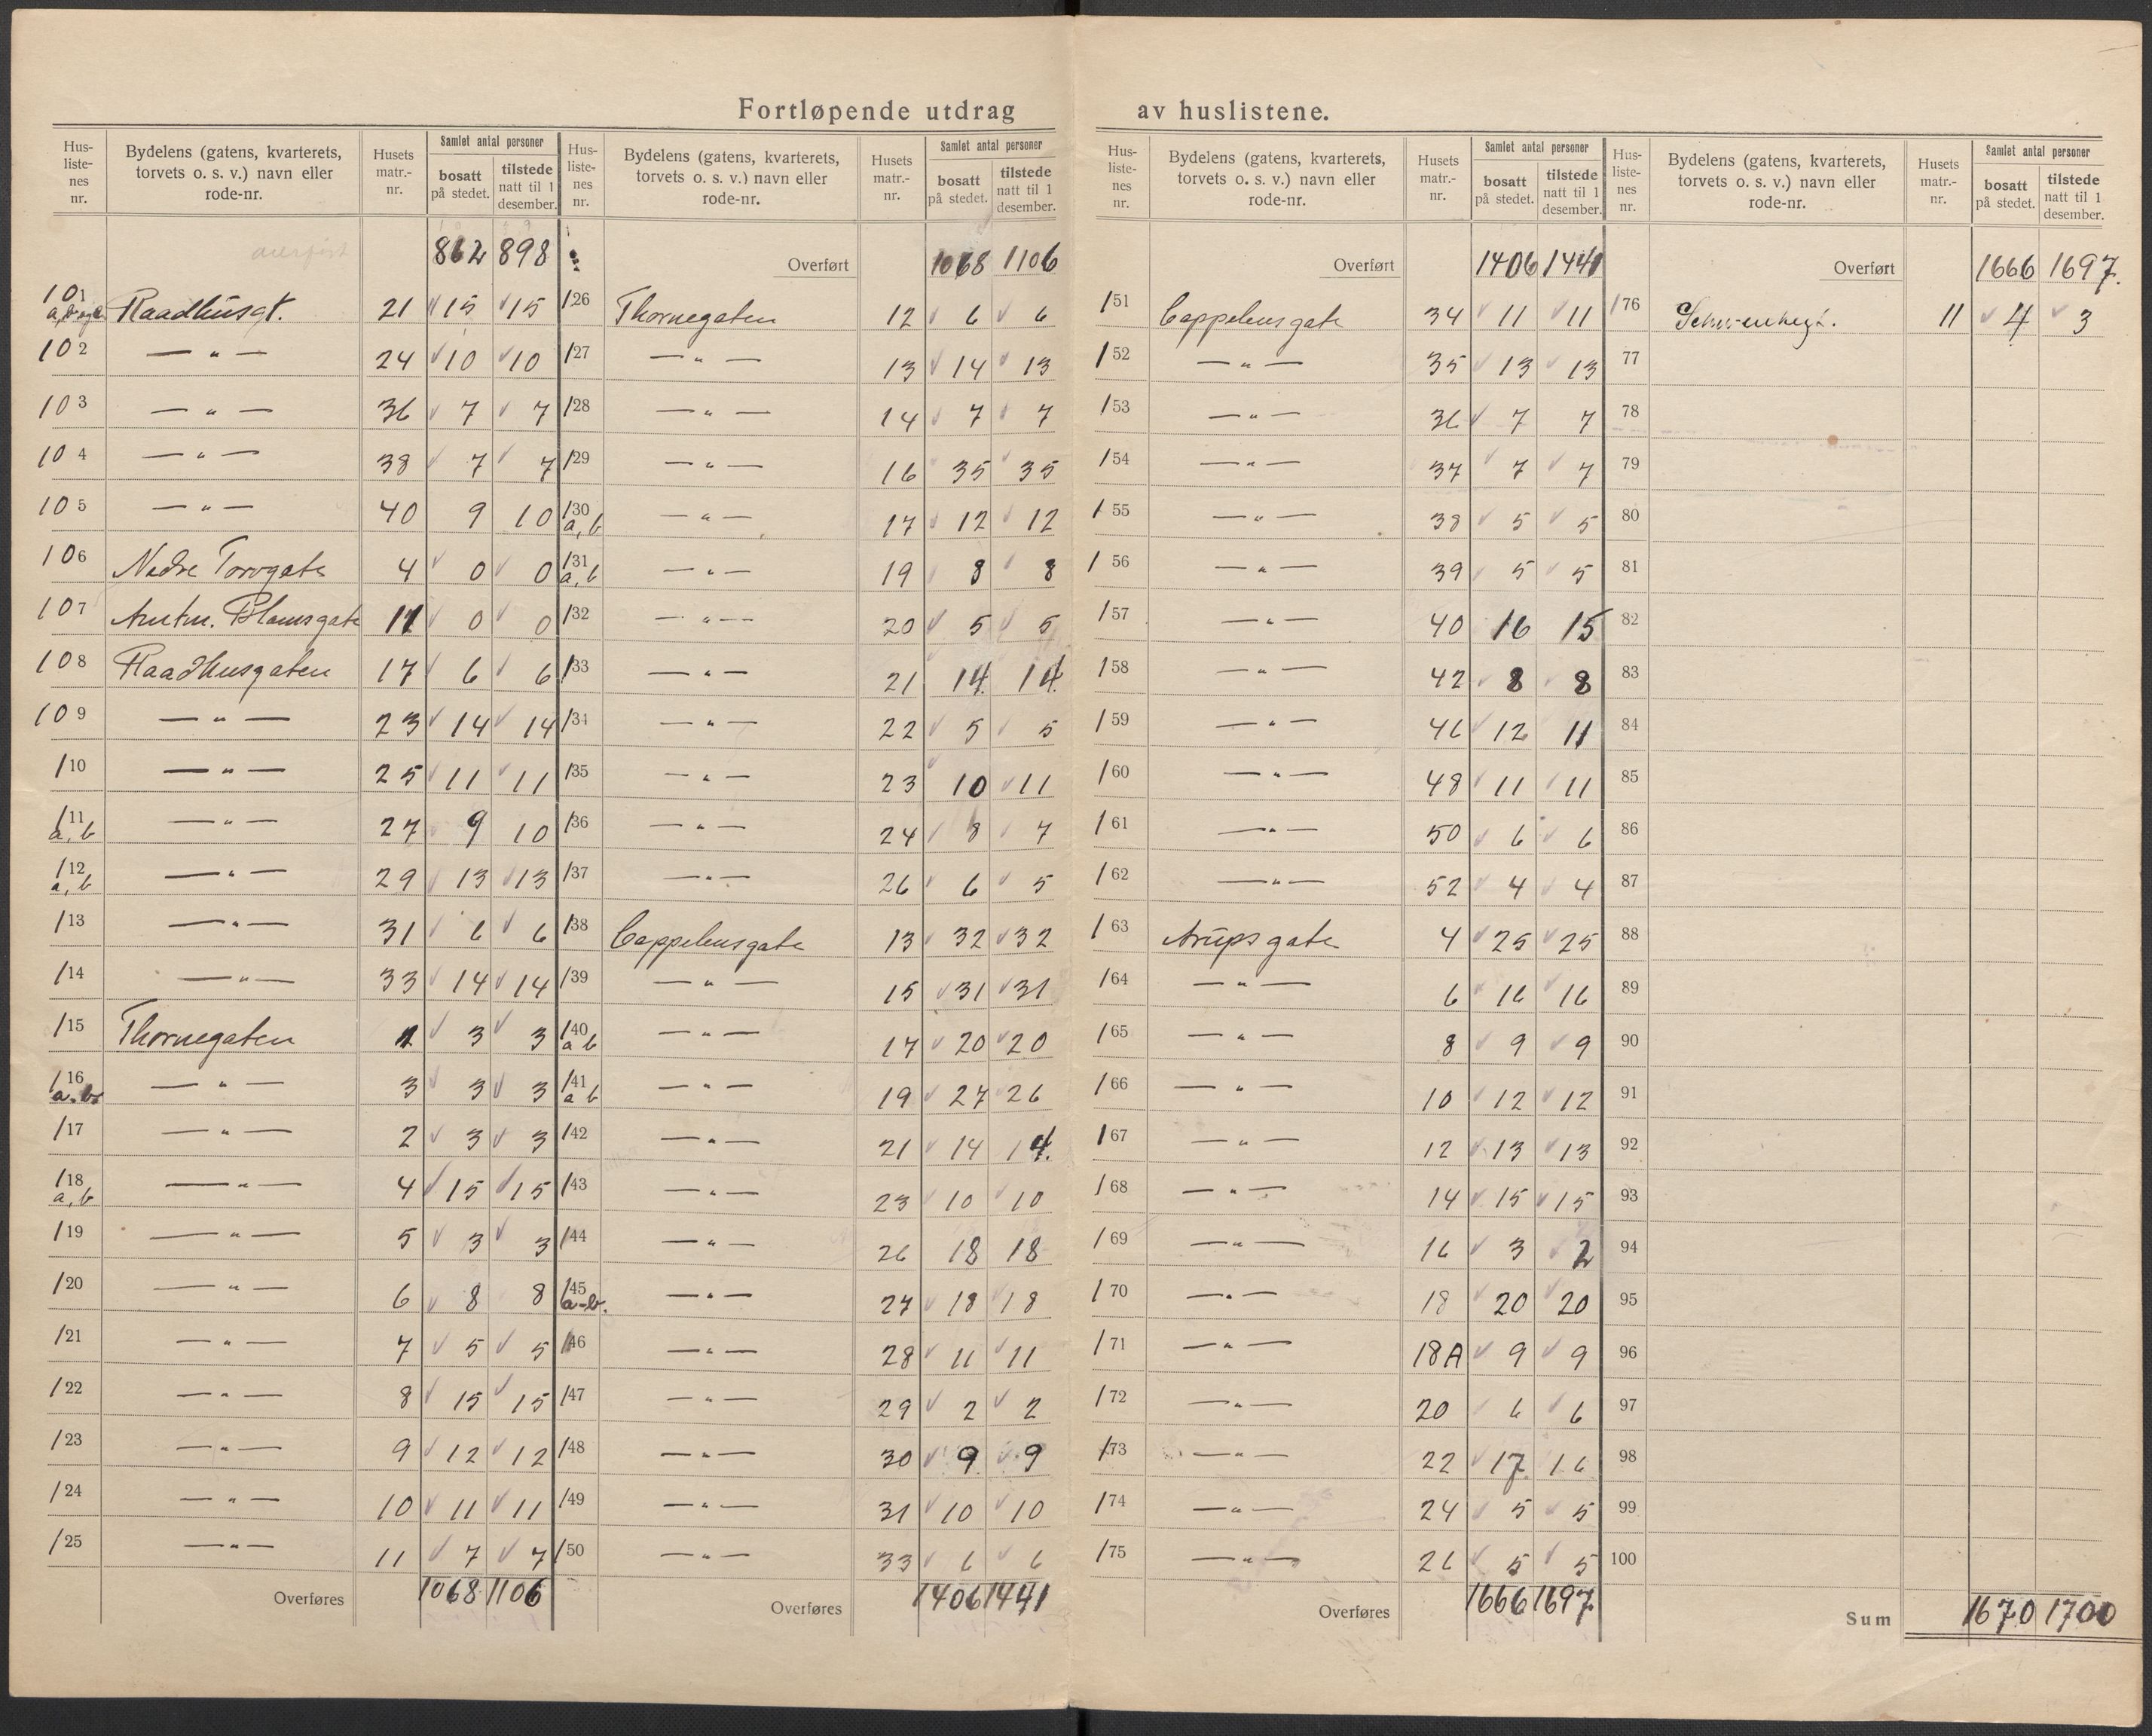 Fortløpende utdrag av huslistene.
Hus-liste-nes nr. | Bydelens (gatens, kvarterets, torvets o. s. v.) navn eller rode-nr. | Husets matr.-nr. | Samlet antal personer | bosatt på stedet. | tilstede natt til 1 desember.
overført 862 898
101 Raadhusgt. 21 15 15
102 — „ — 24 10 10
103 — „ — 36 7 7
104 — „ — 38 7 7
105 — „ — 40 9 10
106 Nedre Torvgate 4 0 0
107 Amtm. Blomsgate 11 0 0
108 Raadhusgaten 17 6 6
109 — „ — 23 14 14
110 — „ — 25 11 11
111 a, b — „ — 27 9 10
112 a, b — „ — 29 13 13
113 — „ — 31 6 6
114 — „ — 33 14 14
115 Thornegaten 1 3 3
116 a. b. — „ — 3 3 3
117 — „ — 2 3 3
118 a, b — „ — 4 15 15
119 — „ — 5 3 3
120 — „ — 6 8 8
121 — „ — 7 5 5
122 — „ — 8 15 15
123 — „ — 9 12 12
124 — „ — 10 11 11
125 — „ — 11 7 7
Overføres 1068 1106
Hus-liste-nes nr. | Bydelens (gatens, kvarterets, torvets o. s. v.) navn eller rode-nr. | Husets matr.-nr. | Samlet antal personer | bosatt på stedet. | tilstede natt til 1 desember.
Overført 1068 1106
126 Thornegaten 12 6 6
127 — „ — 13 14 13
128 — „ — 14 7 7
129 — „ — 16 35 35
130 a, b — „ — 17 12 12
131 a, b — „ — 19 8 8
132 — „ — 20 5 5
133 — „ — 21 14 14
134 — „ — 22 5 5
135 — „ — 23 10 11
136 — „ — 24 8 7
137 — „ — 26 6 5
138 Cappelensgate 13 32 32
139 — „ — 15 31 31
140 a b — „ — 17 20 20
141 a b — „ — 19 27 26
142 — „ — 21 14 14.
143 — „ — 23 10 10
144 — „ — 26 18 18
145 a-b. — „ — 27 18 18
146 — „ — 28 11 11
147 — „ — 29 2 2
148 — „ — 30 9 9
149 — „ — 31 10 10
150 — „ — 33 6 6
Overføres 1406 1441
Hus-liste-nes nr. | Bydelens (gatens, kvarterets, torvets o. s. v.) navn eller rode-nr. | Husets matr.-nr. | Samlet antal personer | bosatt på stedet. | tilstede natt til 1 desember.
Overført 1406 1441
151 Cappelensgate 34 11 11
152 — „ — 35 13 13
153 — „ — 36 7 7
154 — „ — 37 7 7
155 — „ — 38 5 5
156 — „ — 39 5 5
157 — „ — 40 16 15
158 — „ — 42 8 8
159 — „ — 46 12 11
160 — „ — 48 11 11
161 — „ — 50 6 6
162 — „ — 52 4 4
163 Arupsgate 4 25 25
164 — „ — 6 16 16
165 — „ — 8 9 9
166 — „ — 10 12 12
167 — „ — 12 13 13
168 — „ — 14 15 15
169 — „ — 16 3 2
170 — „ — 18 20 20
171 — „ — 18A 9 9
172 — „ — 20 6 6
173 — „ — 22 17 16
174 — „ — 24 5 5
175 — „ — 26 5 5
Overføres 1666 1697
Hus-liste-nes nr. | Bydelens (gatens, kvarterets, torvets o. s. v.) navn eller rode-nr. | Husets matr.-nr. | Samlet antal personer | bosatt på stedet. | tilstede natt til 1 desember.
Overført 1666 1697.
176 11 4 3
77
78
79
80
81
82
83
84
85
86
87
88
89
90
91
92
93
94
95
96
97
98
99
100
Sum 1670 1700